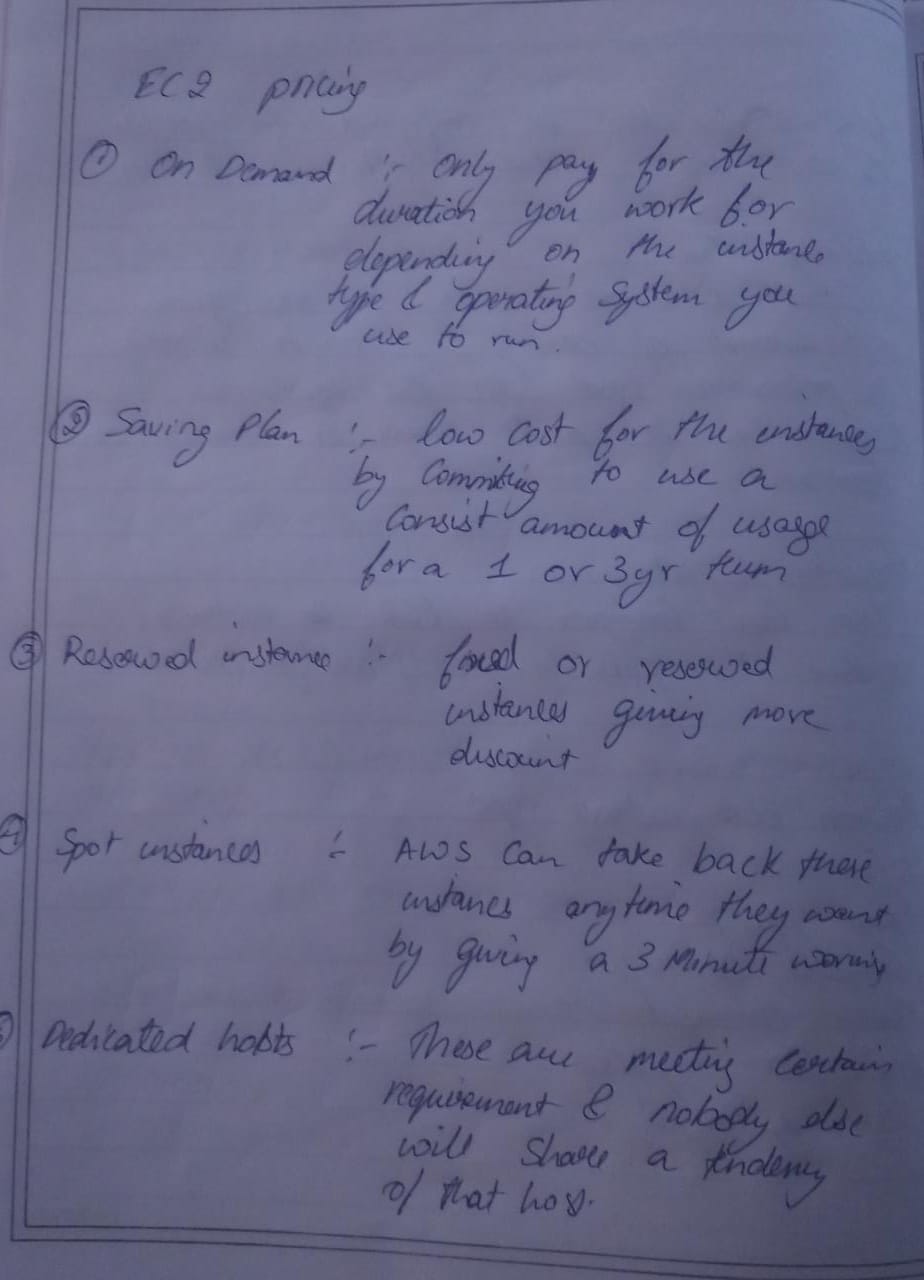 EC2 pricing
① On Demand :- Only pay for the
duration you work for
depending on the instance
type & operating system you
use to run.
② Saving Plan :- low cost for the instances
by Commiting to use a
Consist amount of usage
for a 1 or 3yr
③ Reserved instance :- fixed or reserved
instances giving more
discount
④ Spot instances :- AWS Can take back these
instances anytime they want
by giving a 3 Minute warning
Dedicated hosts :- These are meeting certain
requirement & nobody else
will share a
of that host.